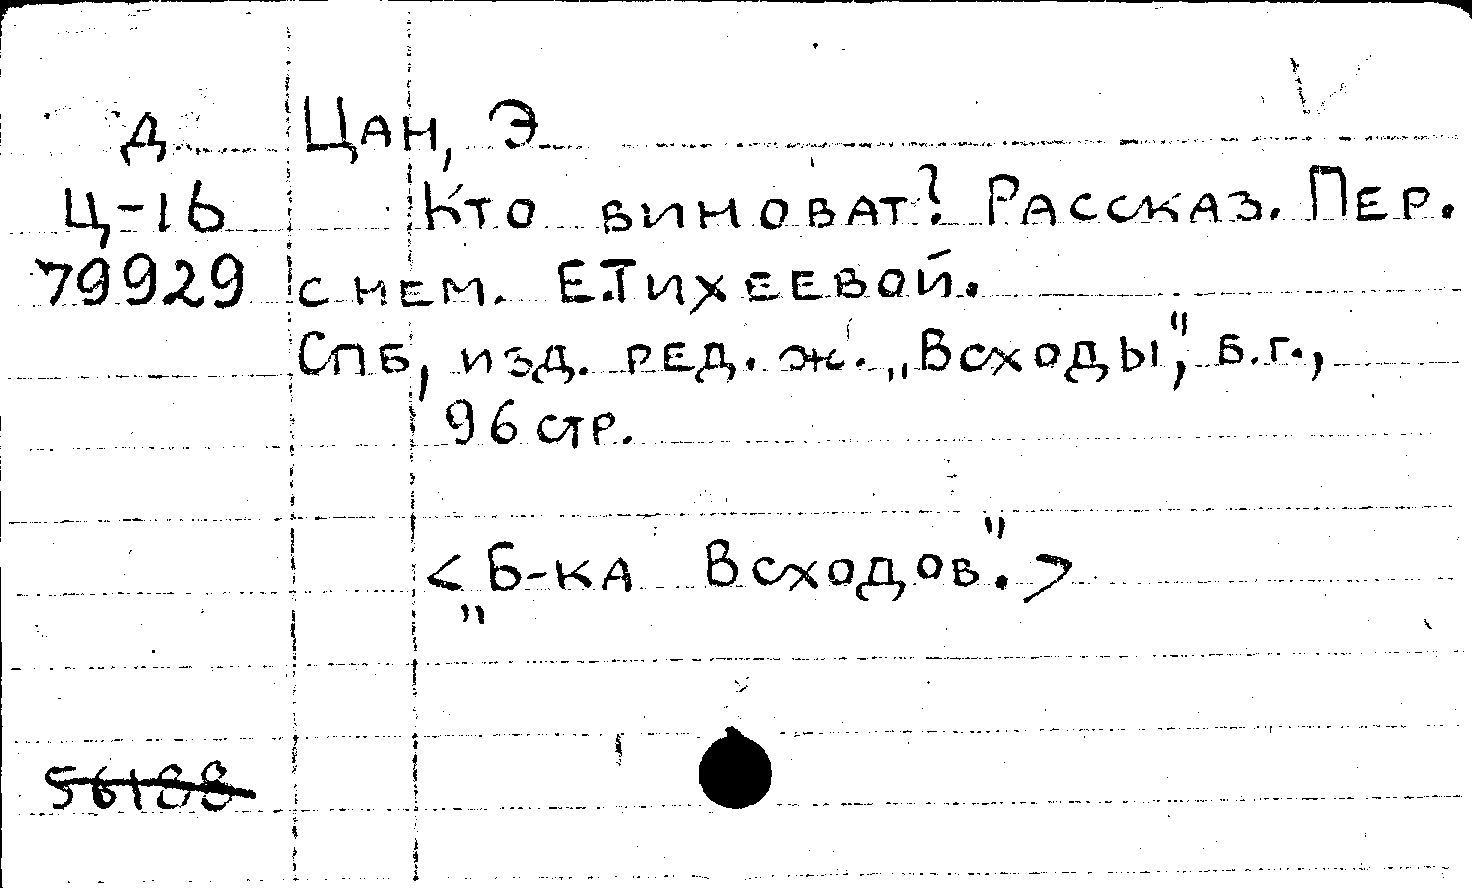 Д Цан, Э
Ц-16 Кто виноват? Рассказ. Пер.
79929 с нем. Е.Тихеевой.
Спб, изд. ред. ж. „Всходы", б.г.,
96 стр.
<„Б-ка Всходов".>
56188